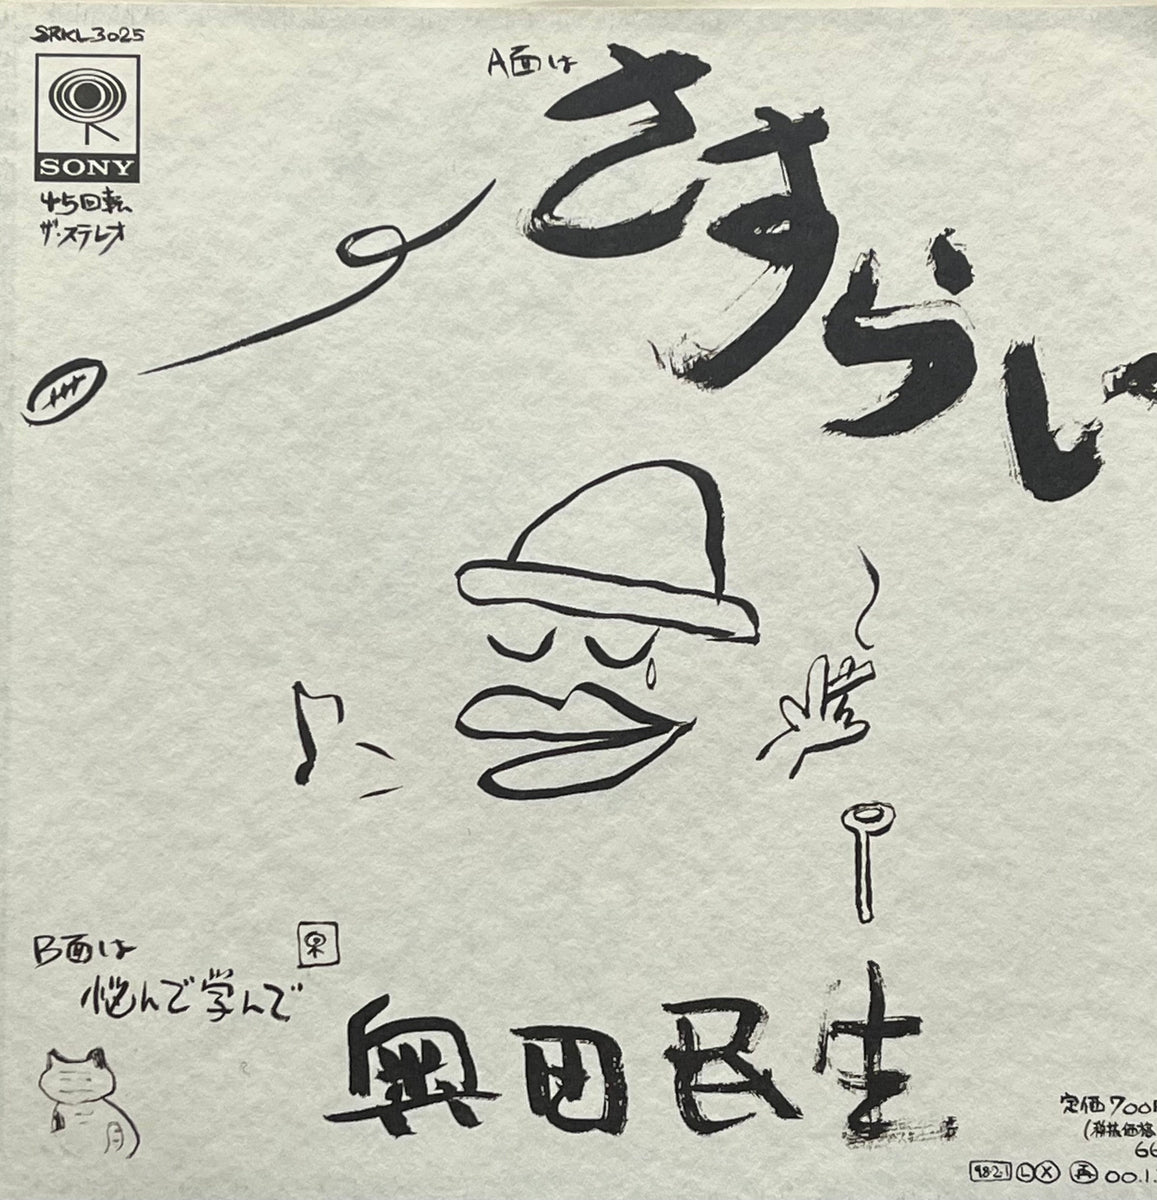 SRKL3025
SONY
45回転
ザ・ステレオ
A面は
さすらい
B面は
悩んで学んで
奥田民生
定価700
(税抜価格
66
98·2·1 L X 再 00.1.